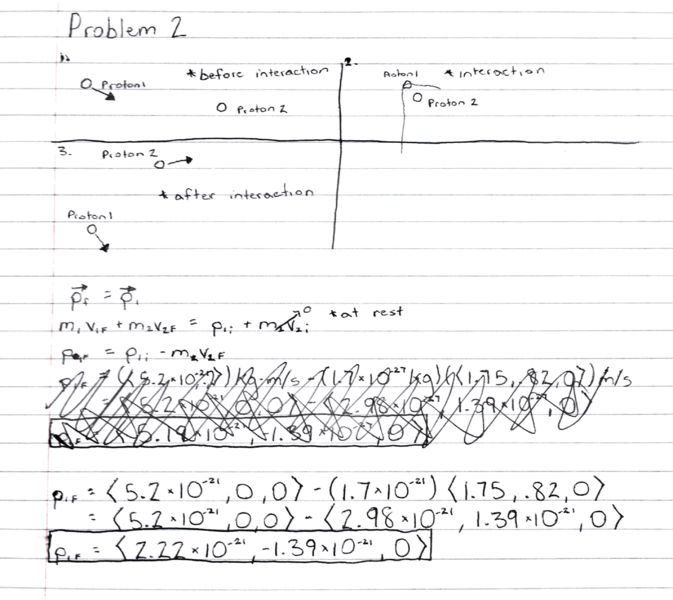 Problem 2
1.
Proton1
*before interaction
Proton 2
2.
Proton1
*interaction
Proton 2
3.
Proton 2
*after interaction
Proton1
p⃗f = p⃗i
m₁v₁F + m₂v₂F = p₁i + m₂v₂i → 0 *at rest
p₁F = p₁i - m₂v₂F
p₁F = ⟨5.2×10⁻²¹, 0, 0⟩ - (1.7×10⁻²¹)⟨1.75, .82, 0⟩
= ⟨5.2×10⁻²¹, 0, 0⟩ - ⟨2.98×10⁻²¹, 1.39×10⁻²¹, 0⟩
p₁F = ⟨2.22×10⁻²¹, -1.39×10⁻²¹, 0⟩